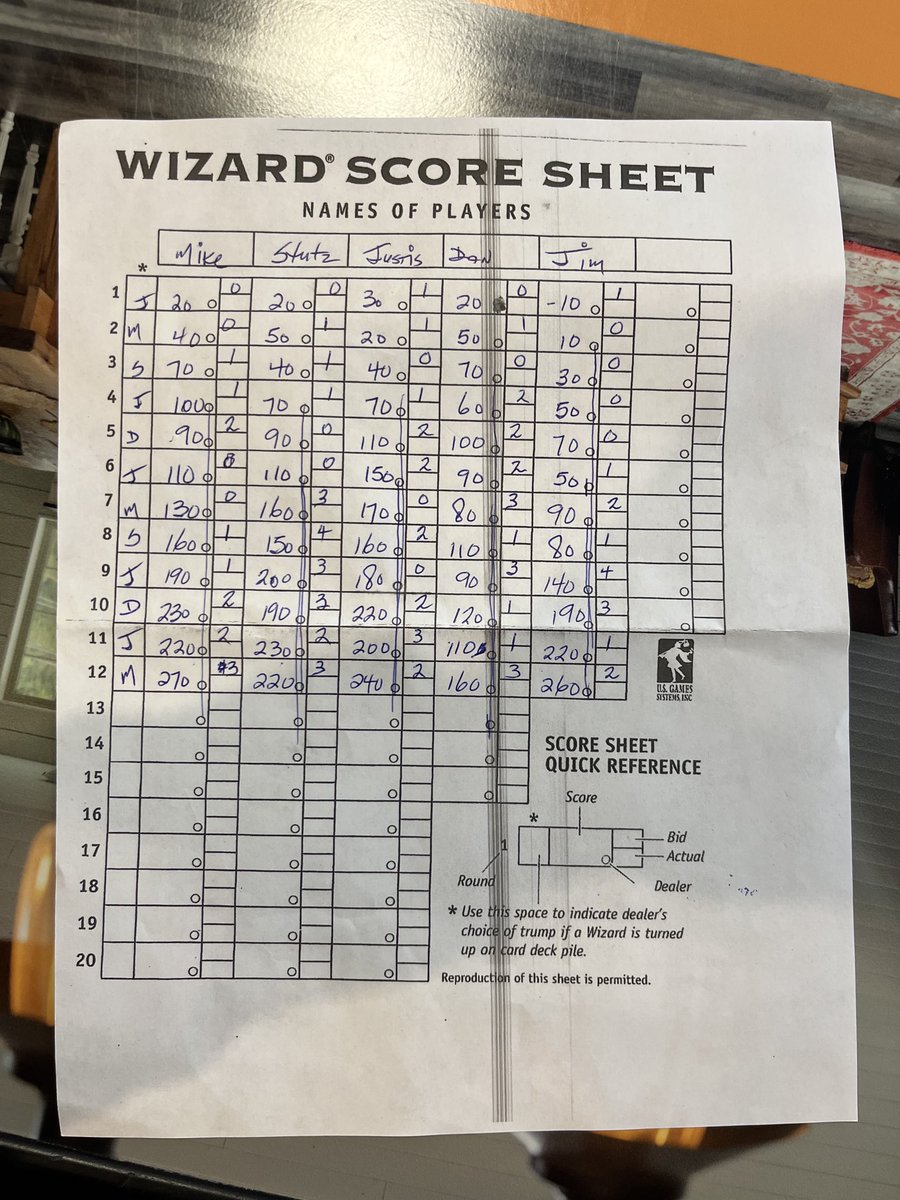 WIZARD® SCORE SHEET
NAMES OF PLAYERS
Mike Stutz Justis Dan Jim
*
1 J 20 0 20 0 30 1 20 0 -10 1
2 M 40 0 50 1 20 1 50 1 10 0
3 S 70 1 40 1 40 0 70 0 30 0
4 J 100 1 70 1 70 1 60 2 50 0
5 D 90 2 90 0 110 2 100 2 70 0
6 J 110 0 110 0 150 2 90 2 50 1
7 M 130 0 160 3 170 0 80 3 90 2
8 S 160 1 150 4 160 2 110 1 80 1
9 J 190 1 200 3 180 0 90 3 140 4
10 D 230 2 190 3 220 2 120 1 190 3
11 J 220 2 230 2 200 3 110 1 220 1
12 M 270 3 220 3 240 2 160 3 260 2
U.S. GAMES
SYSTEMS, INC
13
14
15
16
17
18
19
20
SCORE SHEET
QUICK REFERENCE
Score
*
Bid
1
Actual
Round
Dealer
* Use this space to indicate dealer's
choice of trump if a Wizard is turned
up on card deck pile.
Reproduction of this sheet is permitted.